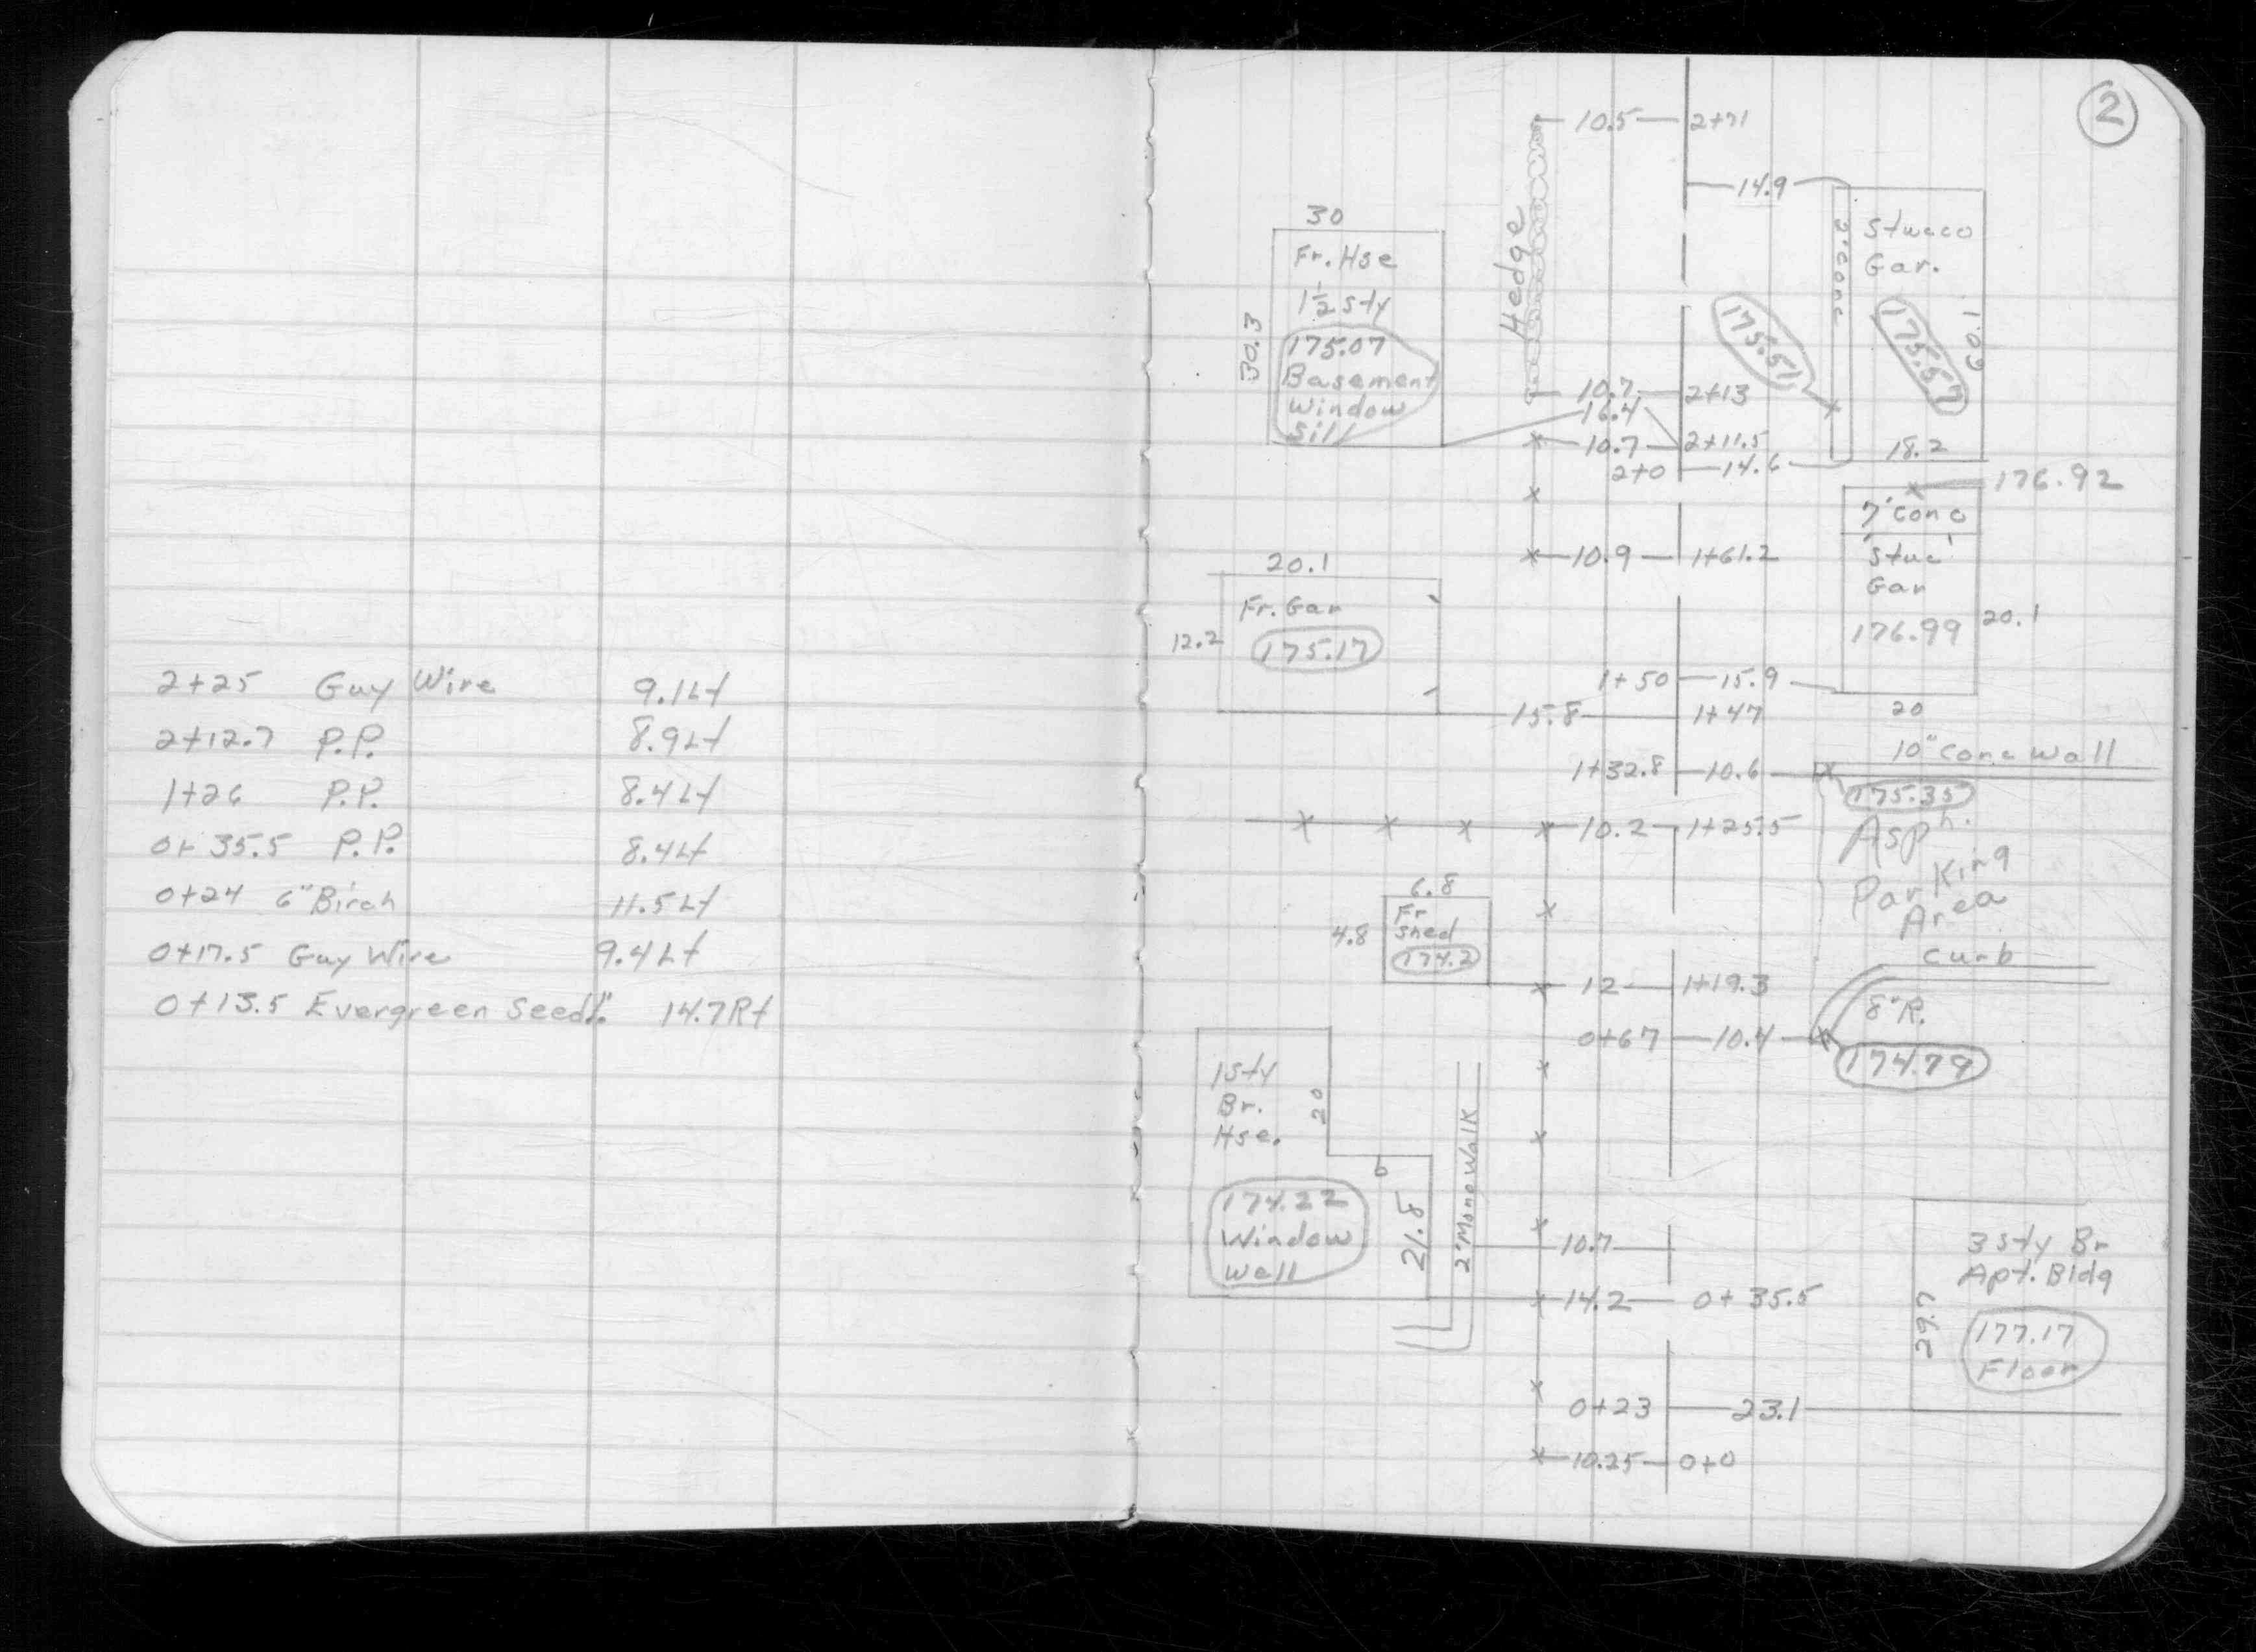 2+25 Guy Wire 9.1Lt
2+12.7 P.P. 8.9Lt
1+26 P.P. 8.4Lt
0+35.5 P.P. 8.4Lt
0+24 6" Birch 11.5Lt
0+17.5 Guy Wire 9.4Lt
0+13.5 Evergreen Seedl. 14.7Rt
2
10.5 2+71
14.9
30
Fr. Hse
1½ sty
175.07
Basement
Window
Sill
30.3
Hedge
2' conc
Stucco
Gar.
175.57
60.1
18.2
175.51
10.7 2+13
16.4
10.7 2+11.5
2+0 14.6
176.92
7' conc
Stuc
Gar
176.99
20.1
20
10.9 1+61.2
20.1
Fr. Gar
175.17
12.2
1+50 15.9
15.8 1+47
10" conc wall
1+32.8 10.6
175.35
10.2 1+25.5
Asph.
Parking
Area
6.8
Fr
Shed
174.2
4.8
curb
12 1+19.3
8' R.
0+67 10.4
174.79
1 Sty
Br.
Hse.
20
6
174.22
Window
Well
21.8
2' Mono Walk
10.7
14.2 0+35.5
3 sty Br
Apt. Bldg
177.17
Floor
29.7
0+23 23.1
10.25 0+0